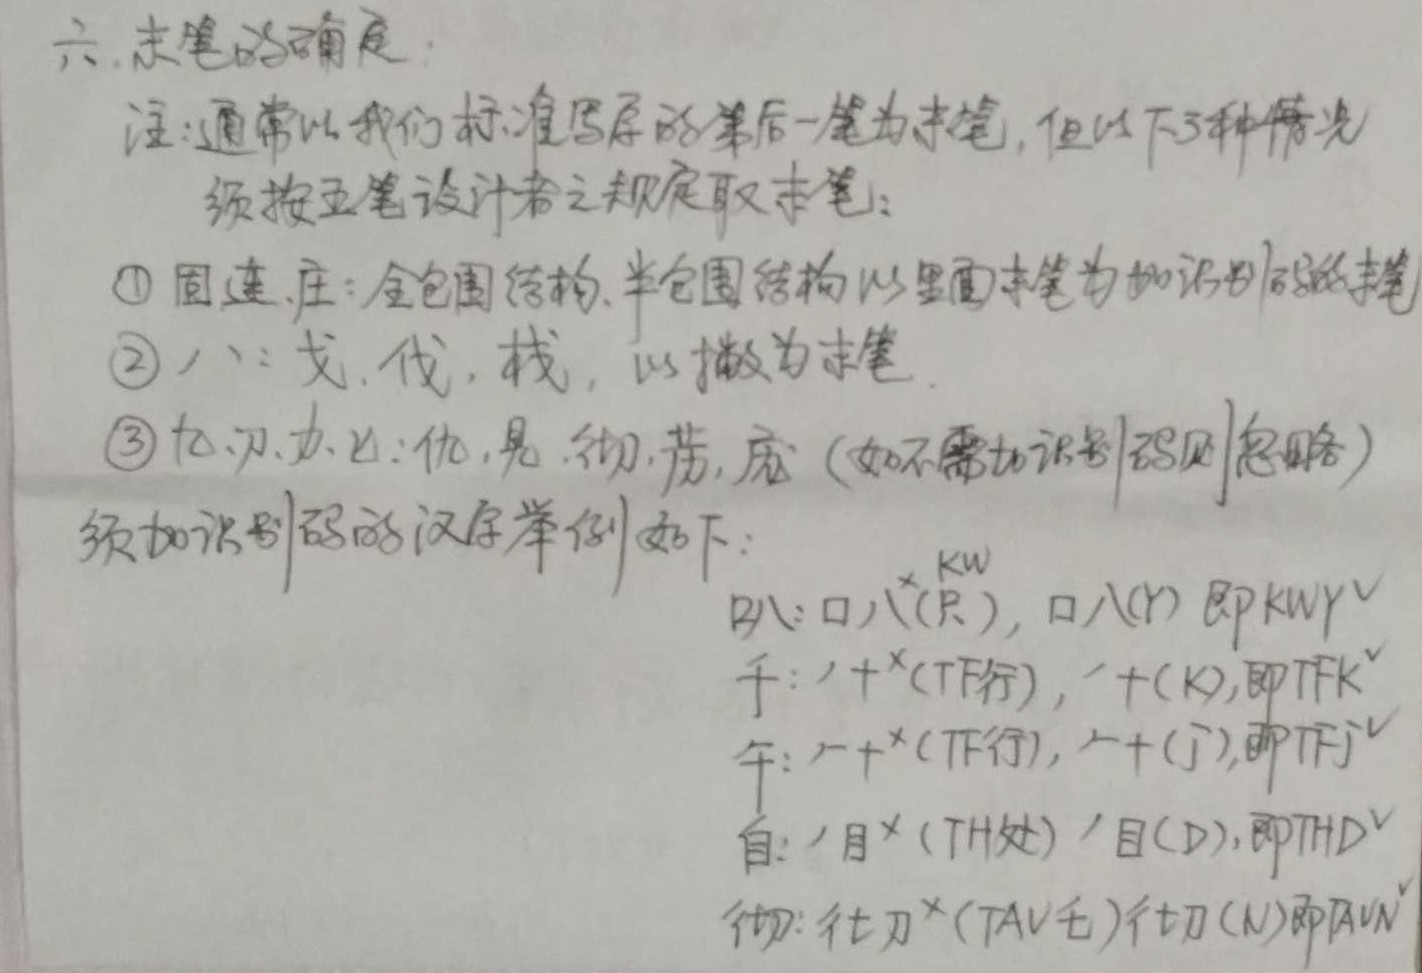 六.末笔的确定:
注:通常以我们标准写字的第后一笔为末笔,但以下3种情况
须按五笔设计者之规定取末笔:
① 固.连.庄:全包围结构、半包围结构以里面末笔为加识别码的末笔
② 丿乀:戈.伐.栈,以撇为末笔.
③ 九.刀.力.匕:仇.见.彻.劳.庞(如不需加识别码则忽略)
须加识别码的汉字举例如下:
KW
叭:口八×(只),口八(Y)即KWY✓
千:丿十×(TF行),丿十(K),即TFK✓
午:𠂉十×(TF行),𠂉十(j),即TFj✓
自:丿目×(TH处)丿目(D),即THD✓
彻:彳七刀×(TAV乇)彳七刀(N)即TAVN✓